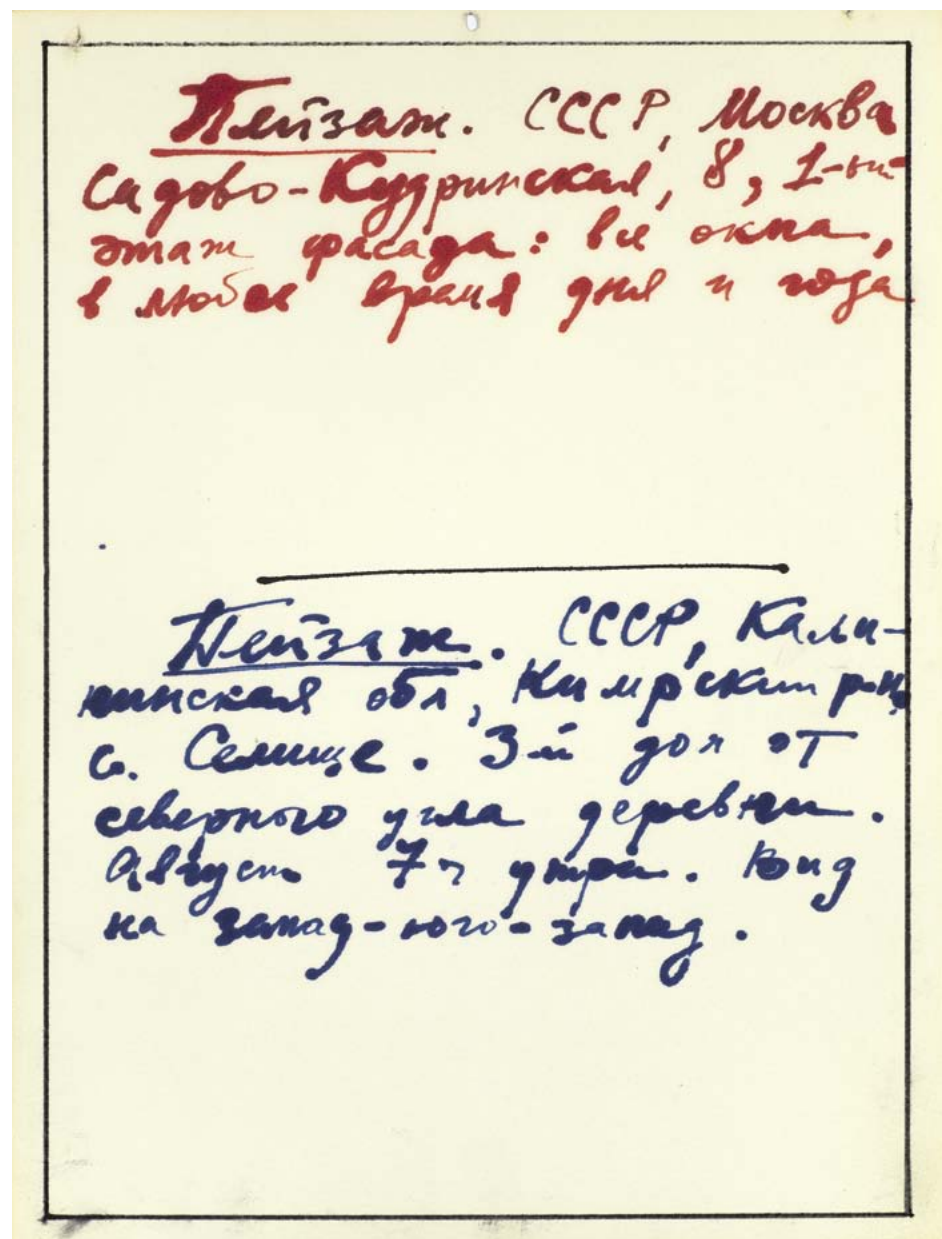 Пейзаж. СССР, Москва
Садово-Кудринская, 8, 1-ый
этаж фасада: все окна,
в любое время дня и года
Пейзаж. СССР, Кали-
нинская обл, Кимрский р-н,
с. Селище. 3й дом от
северного угла деревни.
Август 7ч утра. Вид
на запад-юго-запад.